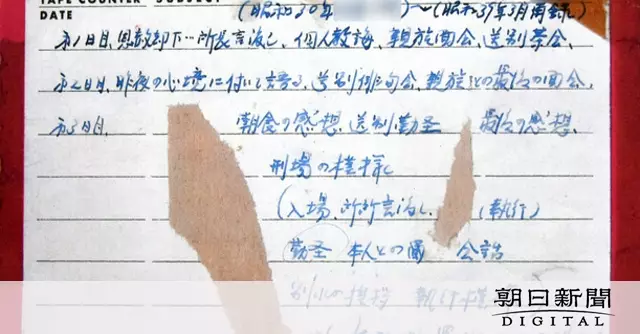 TAPE COUNTER SUBJECT
DATE
(昭和30年 )〜(昭和37年3月再録)
第1日目、恩赦却下…所長言渡し、個人教誨、親族面会、送別茶会、
第2日目、昨夜の心境に付いて語る、送別俳句会、親族との最後の面会、
第3日目、 朝食の感想、送別勤行 最後の感想、
刑場の模様
(入場、所長言渡し、 (執行)
本人との
の模様 執行
朝日新聞
DIGITAL